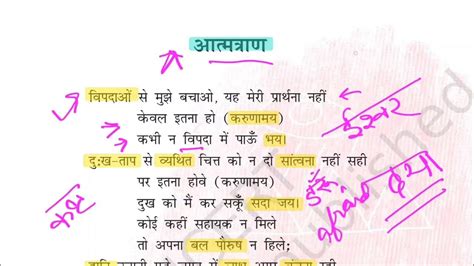 आत्मत्राण
विपदाओं से मुझे बचाओ, यह मेरी प्रार्थना नहीं
केवल इतना हो (करुणामय)
कभी न विपदा में पाऊँ भय।
ईश्वर
दुःख-ताप से व्यथित चित्त को न दो सांत्वना नहीं सही
पर इतना होवे (करुणामय)
दया
कष्ट
दुख को मैं कर सकूँ सदा जय।
कोई कहीं सहायक न मिले
तो अपना बल पौरुष न हिले;